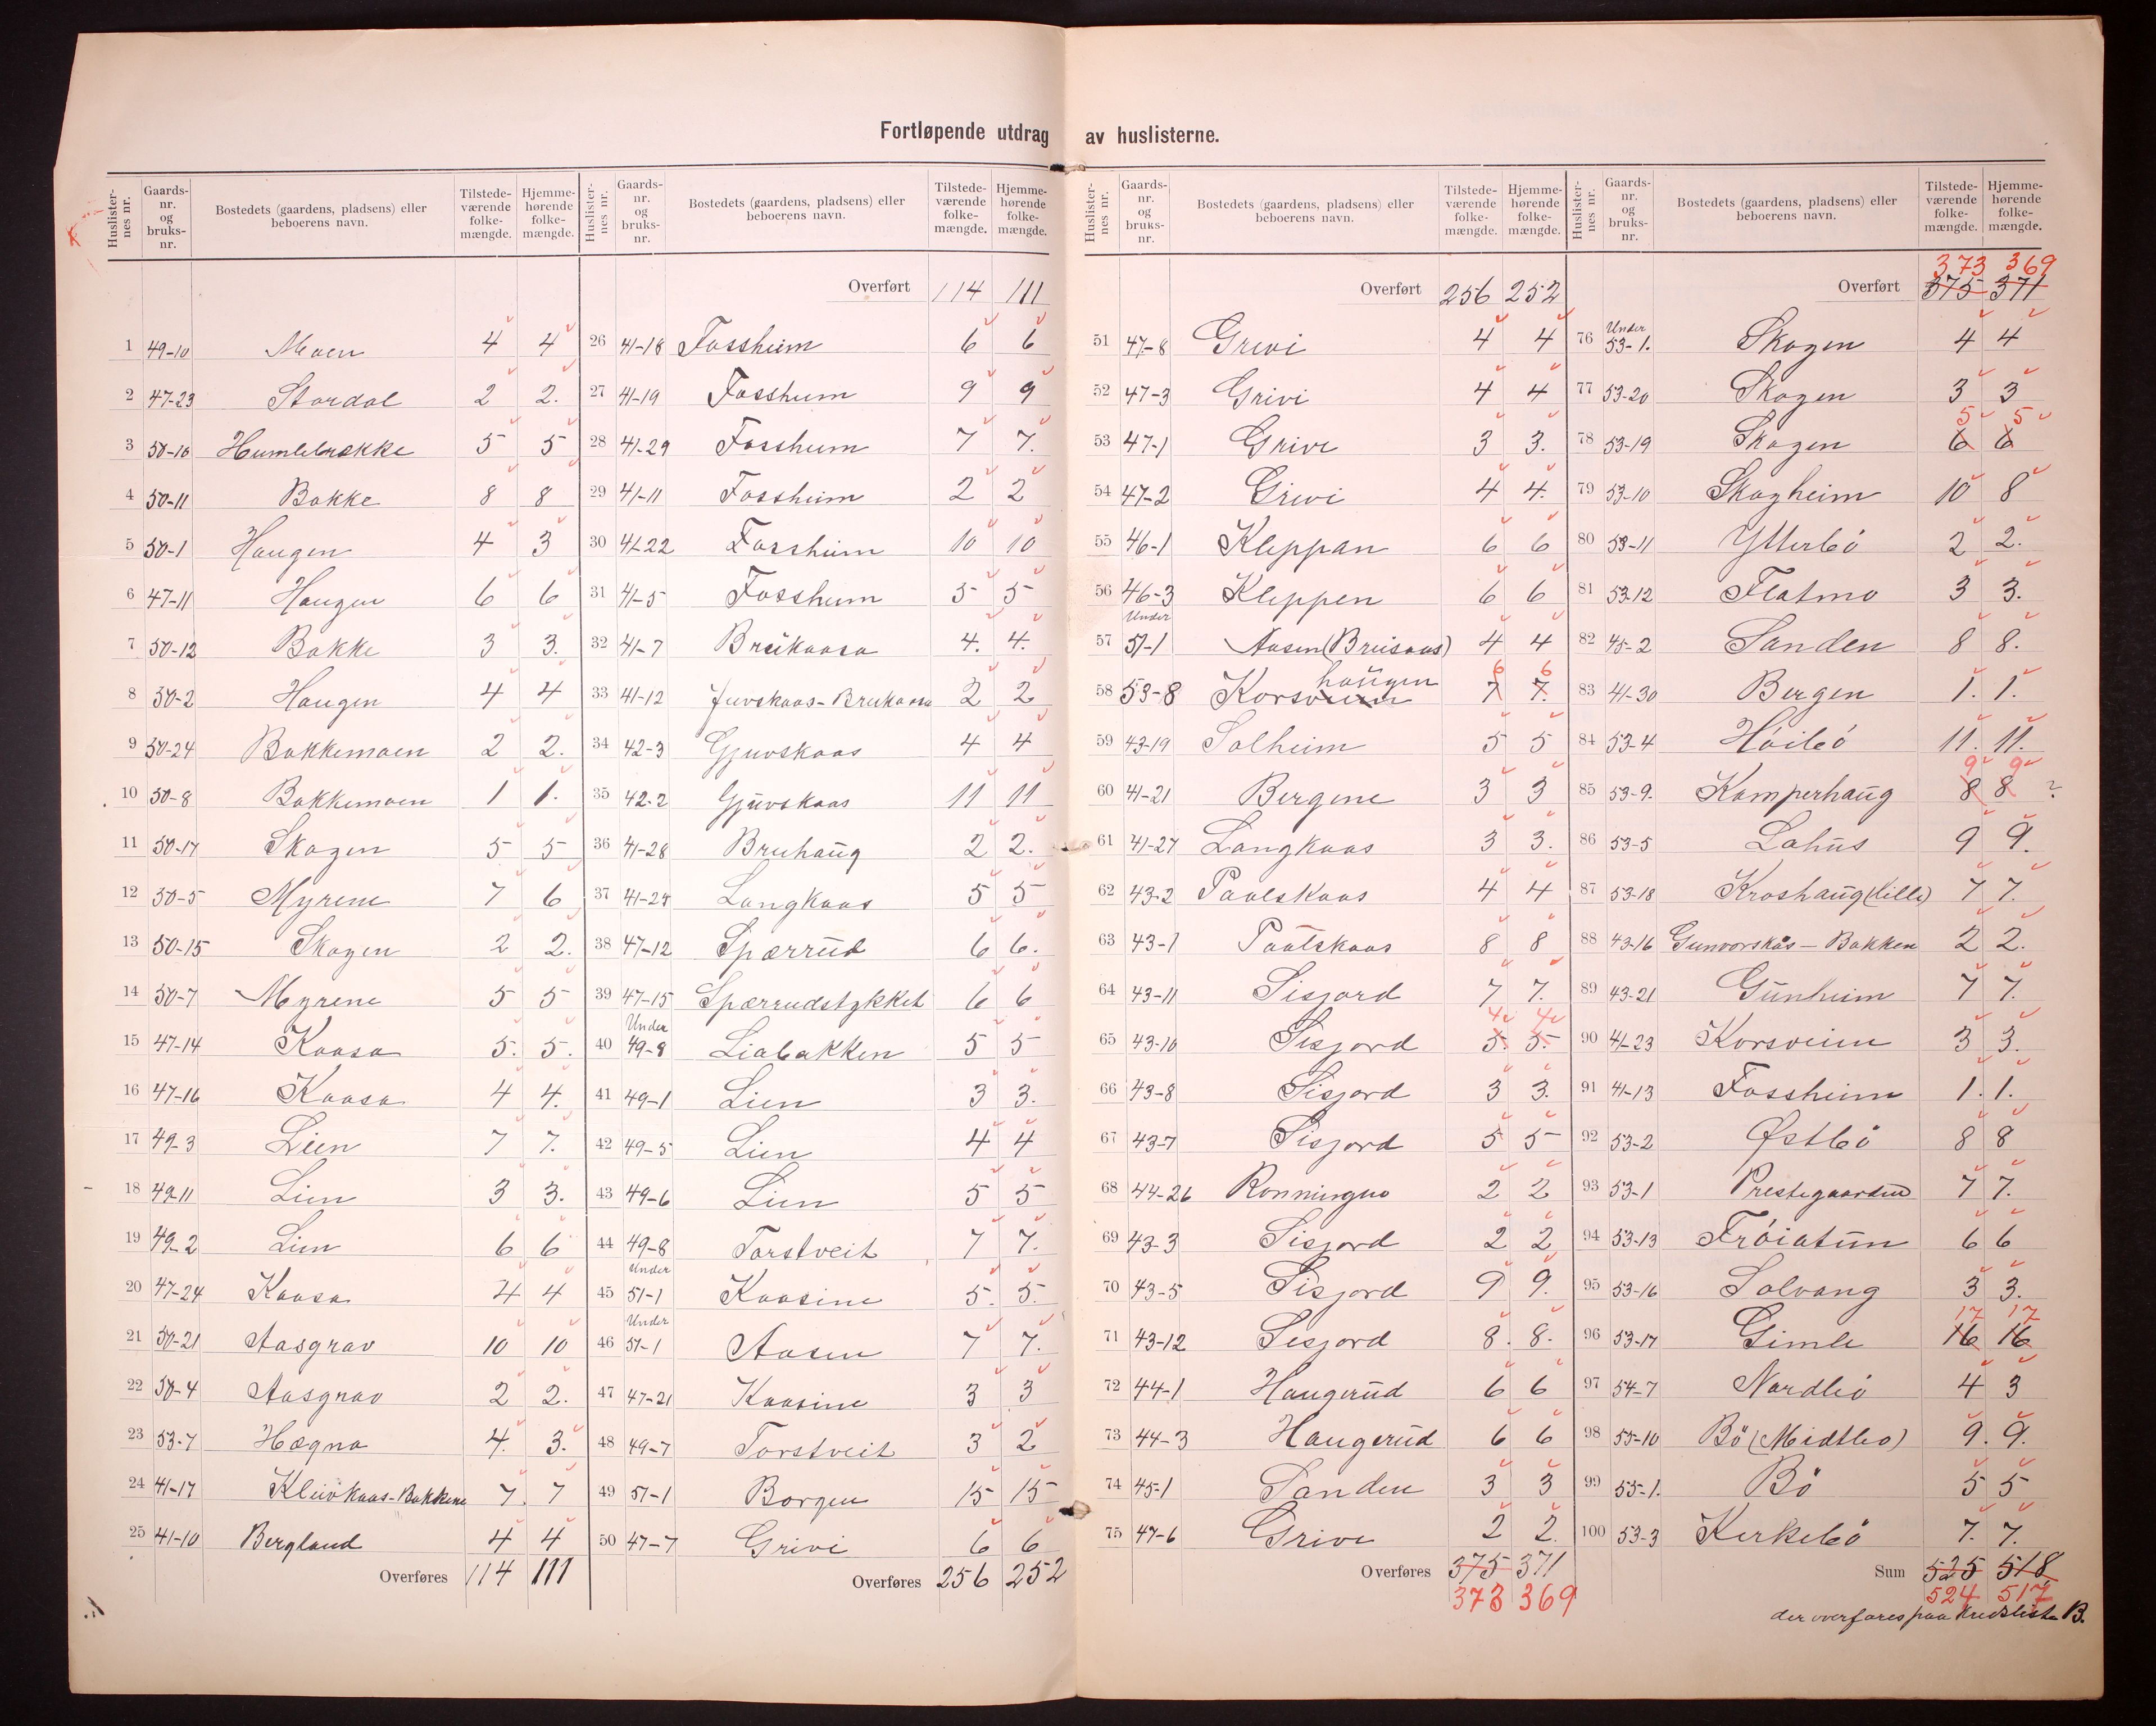 Fortløpende utdrag av huslisterne.
Huslister-nes nr. | Gaards-nr. og bruks-nr. | Bostedets (gaardens, pladsens) eller beboerens navn. | Tilstede-værende folke-mængde. | Hjemme-hørende folke-mængde.
1 49-10 Moen 4 4
2 47-23 Stordal 2 2.
3 50-16 Humlebrække 5 5
4 50-11 Bakke 8 8
5 50-1 Haugen 4 3
6 47-11 Haugen 6 6
7 50-12 Bakke 3 3.
8 50-2 Haugen 4 4
9 50-24 Bakkemoen 2 2.
10 50-8 Bakkemoen 1 1.
11 50-17 Skogen 5 5
12 50-5 Myrene 7 6
13 50-15 Skogen 2 2.
14 50-7 Myrene 5 5
15 47-14 Kaasa 5. 5.
16 47-16 Kaasa 4 4.
17 49-3 Lien 7 7.
18 49-11 Lien 3 3.
19 49-2 Lien 6 6
20 47-24 Kaasa 4 4
21 50-21 Aasgrav 10 10
22 50-4 Aasgrav 2 2.
23 53-7 Hægna 4. 3.
24 41-17 Kleivkaas-Bakkene 7. 7
25 41-10 Bergland 4 4
Overføres 114 111
Huslister-nes nr. | Gaards-nr. og bruks-nr. | Bostedets (gaardens, pladsens) eller beboerens navn. | Tilstede-værende folke-mængde. | Hjemme-hørende folke-mængde.
Overført 114 111
26 41-18 Fossheim 6 6
27 41-19 Fossheim 9 9
28 41-29 Fossheim 7 7.
29 41-11 Fossheim 2 2
30 41-22 Fossheim 10 10
31 41-5 Fossheim 5 5
32 41-7 Breikaasa 4. 4.
33 41-12 Juvskaas-Breikaasa 2 2
34 42-3 Gjuvskaas 4 4
35 42-2 Gjuvskaas 11 11
36 41-28 Bruhaug 2 2.
37 41-24 Langkaas 5 5
38 47-12 Spærrud 6 6.
39 47-15 Spærrudstykket 6 6
40 Under 49-8 Liabakken 5 5
41 49-1 Lien 3 3.
42 49-5 Lien 4 4
43 49-6 Lien 5 5
44 49-8 Torstveit 7 7.
45 Under 51-1 Kaasine 5. 5.
46 Under 51-1 Aasen 7 7.
47 47-21 Kaasine 3 3
48 49-7 Torstveit 3 2
49 51-1 Borgen 15 15
50 47-7 Grivi 6 6
Overføres 256 252
Huslister-nes nr. | Gaards-nr. og bruks-nr. | Bostedets (gaardens, pladsens) eller beboerens navn. | Tilstede-værende folke-mængde. | Hjemme-hørende folke-mængde.
Overført 256 252
51 47-8 Grivi 4 4
52 47-3 Grivi 4 4
53 47-1 Grivi 3 3.
54 47-2 Grivi 4 4.
55 46-1 Kleppen 6 6
56 46-3 Kleppen 6 6
57 Under 51-1 Aasen (Breisaas) 4 4
58 53-8 Korsveien haugen 7 7. 6 6
59 43-19 Solheim 5 5
60 41-21 Bergene 3 3
61 41-27 Langkaas 3 3.
62 43-2 Paalskaas 4 4
63 43-1 Paalskaas 8 8
64 43-11 Sisjord 7 7.
65 43-10 Sisjord 5. 5. 4 4
66 43-8 Sisjord 3 3.
67 43-7 Sisjord 5 5
68 44-26 Rønningen 2 2
69 43-3 Sisjord 2 2
70 43-5 Sisjord 9 9.
71 43-12 Sisjord 8. 8.
72 44-1 Haugerud 6 6
73 44-3 Haugerud 6 6
74 45-1 Sanden 3 3
75 47-6 Grive 2 2.
Overføres 375 371
373 369
Huslister-nes nr. | Gaards-nr. og bruks-nr. | Bostedets (gaardens, pladsens) eller beboerens navn. | Tilstede-værende folke-mængde. | Hjemme-hørende folke-mængde.
373 369
Overført 375 371
76 Under 53-1. Skogen 4 4
77 53-20 Skogen 3 3
78 53-19 Skogen 6 6 5 5
79 53-10 Skogheim 10 8
80 53-11 Ytterbö 2 2.
81 53-12 Flatmo 3 3.
82 45-2 Sanden 8 8.
83 41-30 Bergen 1. 1.
84 53-4 Höibö 11. 11.
85 53-9. Kamperhaug 8 8 9 9 ?
86 53-5 Lahus 9 9.
87 53-18 Kroshaug (lille) 7 7.
88 43-16 Gunvorskås - Bakken 2 2.
89 43-21 Gunheim 7 7.
90 41-23 Korsveien 3 3.
91 41-13 Fossheim 1. 1.
92 53-2 Østbö 8 8
93 53-1 Prestegaarden 7 7.
94 53-13 Fröiatun 6 6
95 53-16 Solvang 3 3.
96 53-17 Gimle 16 16 17 17
97 54-7 Nordbö 4 3
98 55-10 Bö (Midtbo) 9. 9.
99 55-1. Bö 5 5
100 53-3 Kirkebö 7. 7.
Sum 525 518
524 517
der overføres paa kredsliste B.